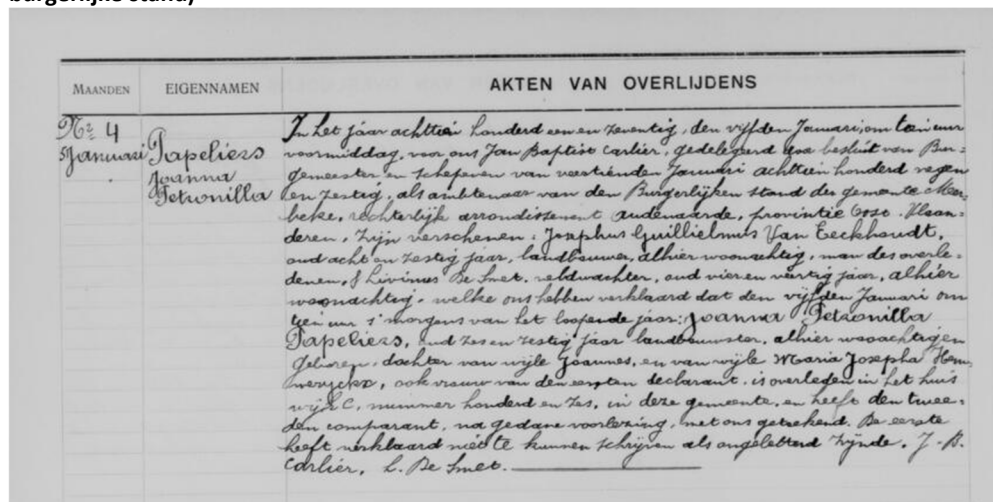 burgerlijke stand)
MAANDEN EIGENNAMEN AKTEN VAN OVERLIJDENS
No 4
5 Januari
Papeliers
Joanna
Petronilla
In het jaar achttien honderd een en zeventig, den vijfden Januari, om tien uur
voormiddag, voor ons Jan Baptist Carlier, gedelegeerd door besluit van Bur-
gemeester en schepenen van veertienden Januari achttien honderd negen
en zestig, als ambtenaar van den Burgerlijken stand der gemeente Meer-
beke, rechterlijk arrondissement Audenaarde, provintie Oost-Vlaan-
deren, zijn verschenen: Josephus Guillielmus Van Eeckhoudt,
oud acht en zestig jaar, landbouwer, alhier woonachtig, man des overle-
denen, & Livinus De Smet, veldwachter, oud vier en veertig jaar, alhier
woonachtig, welke ons hebben verklaard dat den vijfden Januari om
tien uur 's morgens van het loopende jaar: Joanna Petronilla
Papeliers, oud zes en zestig jaar landbouwster, alhier woonachtig en
geboren, dochter van wijle Joannes, en van wijle Maria Josepha
ook vrouw van den eersten declarant, is overleden in het huis
wijk C, nummer honderd en zes, in deze gemeente, en heeft den twee-
den comparant, na gedane voorlezing, met ons geteekend. De eerste
heeft verklaard niet te kunnen schrijven als ongeletterd zijnde. J. B.
Carlier, L. De Smet.